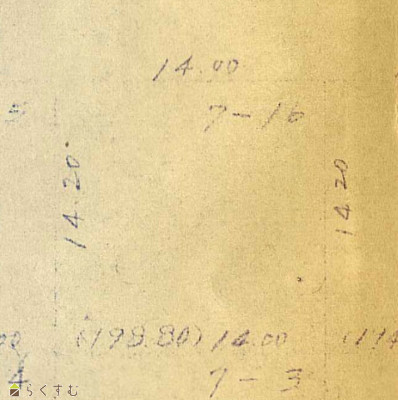 14.00
7-16
14.20
14.20
(198.80) 14.00
7-3
らくすむ